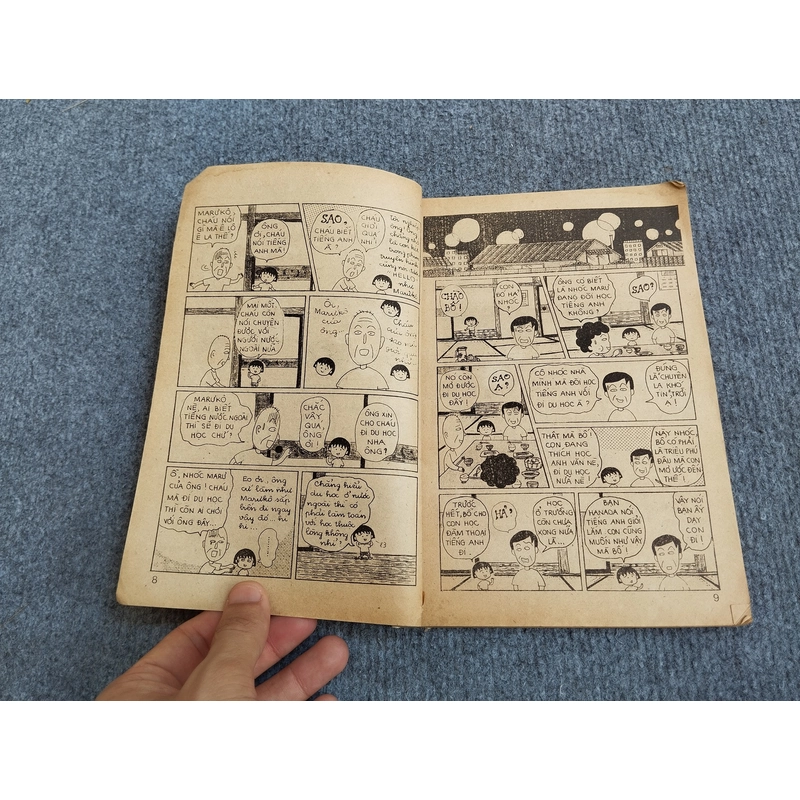 MARUKÔ,
CHÁU NÓI
GÌ MÀ Ê LÔ
Ê LA THẾ?
ÔNG
ƠI, CHÁU
NÓI TIẾNG
ANH MÀ!
SAO,
CHÁU BIẾT
TIẾNG ANH
À?
CHÁU
GIỎI
QUÁ
NHỈ!
HELLO
như
Marukô
MAI MỐT,
CHÁU CÒN
NÓI CHUYỆN
ĐƯỢC VỚI
NGƯỜI NƯỚC
NGOÀI NỮA.
Ôi,
Marukô
của
ông.
MARUKÔ
NÈ, AI BIẾT
TIẾNG NƯỚC NGOÀI
THÌ SẼ ĐI DU
HỌC CHỨ?
CHẮC
VẬY
QUÁ,
ÔNG
ƠI!
ÔNG XIN
CHO CHÁU
ĐI DU HỌC
NHA
ÔNG?
Ồ, NHÓC MARU
CỦA ÔNG! CHÁU
MÀ ĐI DU HỌC
THÌ CÒN AI CHƠI
VỚI ÔNG ĐÂY...
Eo ơi, ông
cứ làm như
Marukô sắp
bên đi ngay
vậy đó... hi
hi.
Chẳng hiểu
du học ở nước
ngoài thì có
phải làm toán
và học thuộc
lòng không
nhỉ?
8
CHÀO
BỐ!
CON
ĐÓ HẢ
NHÓC?
ÔNG CÓ BIẾT
LÀ NHÓC MARU
ĐANG ĐÒI HỌC
TIẾNG ANH
KHÔNG?
SAO?
NÓ CÒN
MƠ ĐƯỢC
ĐI DU HỌC
ĐẤY!
SAO
Ạ?
CÓ NHÓC NHÀ
MÌNH MÀ ĐÒI HỌC
TIẾNG ANH VỚI
ĐI DU HỌC Á?
ĐÚNG
LÀ CHUYỆN
KHÓ
TIN, TRỜI
Ạ!
THẬT MÀ BỐ!
CON ĐANG
THÍCH HỌC
ANH VĂN NÈ,
ĐI DU HỌC
NỮA NÈ!
NÀY NHÓC,
BỐ CÓ PHẢI
LÀ TRIỆU PHÚ
ĐÂU MÀ CON
MƠ ƯỚC ĐẾN
THẾ!
TRƯỚC
HẾT, BỐ CHO
CON HỌC
ĐÀM THOẠI
TIẾNG ANH
ĐI.
HẢ?
HỌC
Ở TRƯỜNG
CÒN CHƯA
XONG NỮA
LÀ...
BẠN
HANAOA NÓI
TIẾNG ANH GIỎI
LẮM, CON CŨNG
MUỐN NHƯ VẬY
MÀ BỐ!
VẬY NÓI
BẠN ẤY
DẠY
CON ĐI!
9